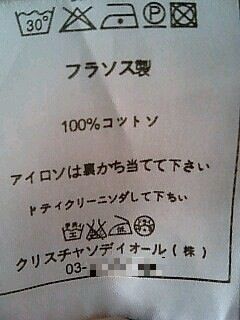 30°
P
フラソス製
100%コットソ
アイロソは裏かち当てて下さい
ドティクリーニンダして下ちい
クリスチャソディオール(株)
03-